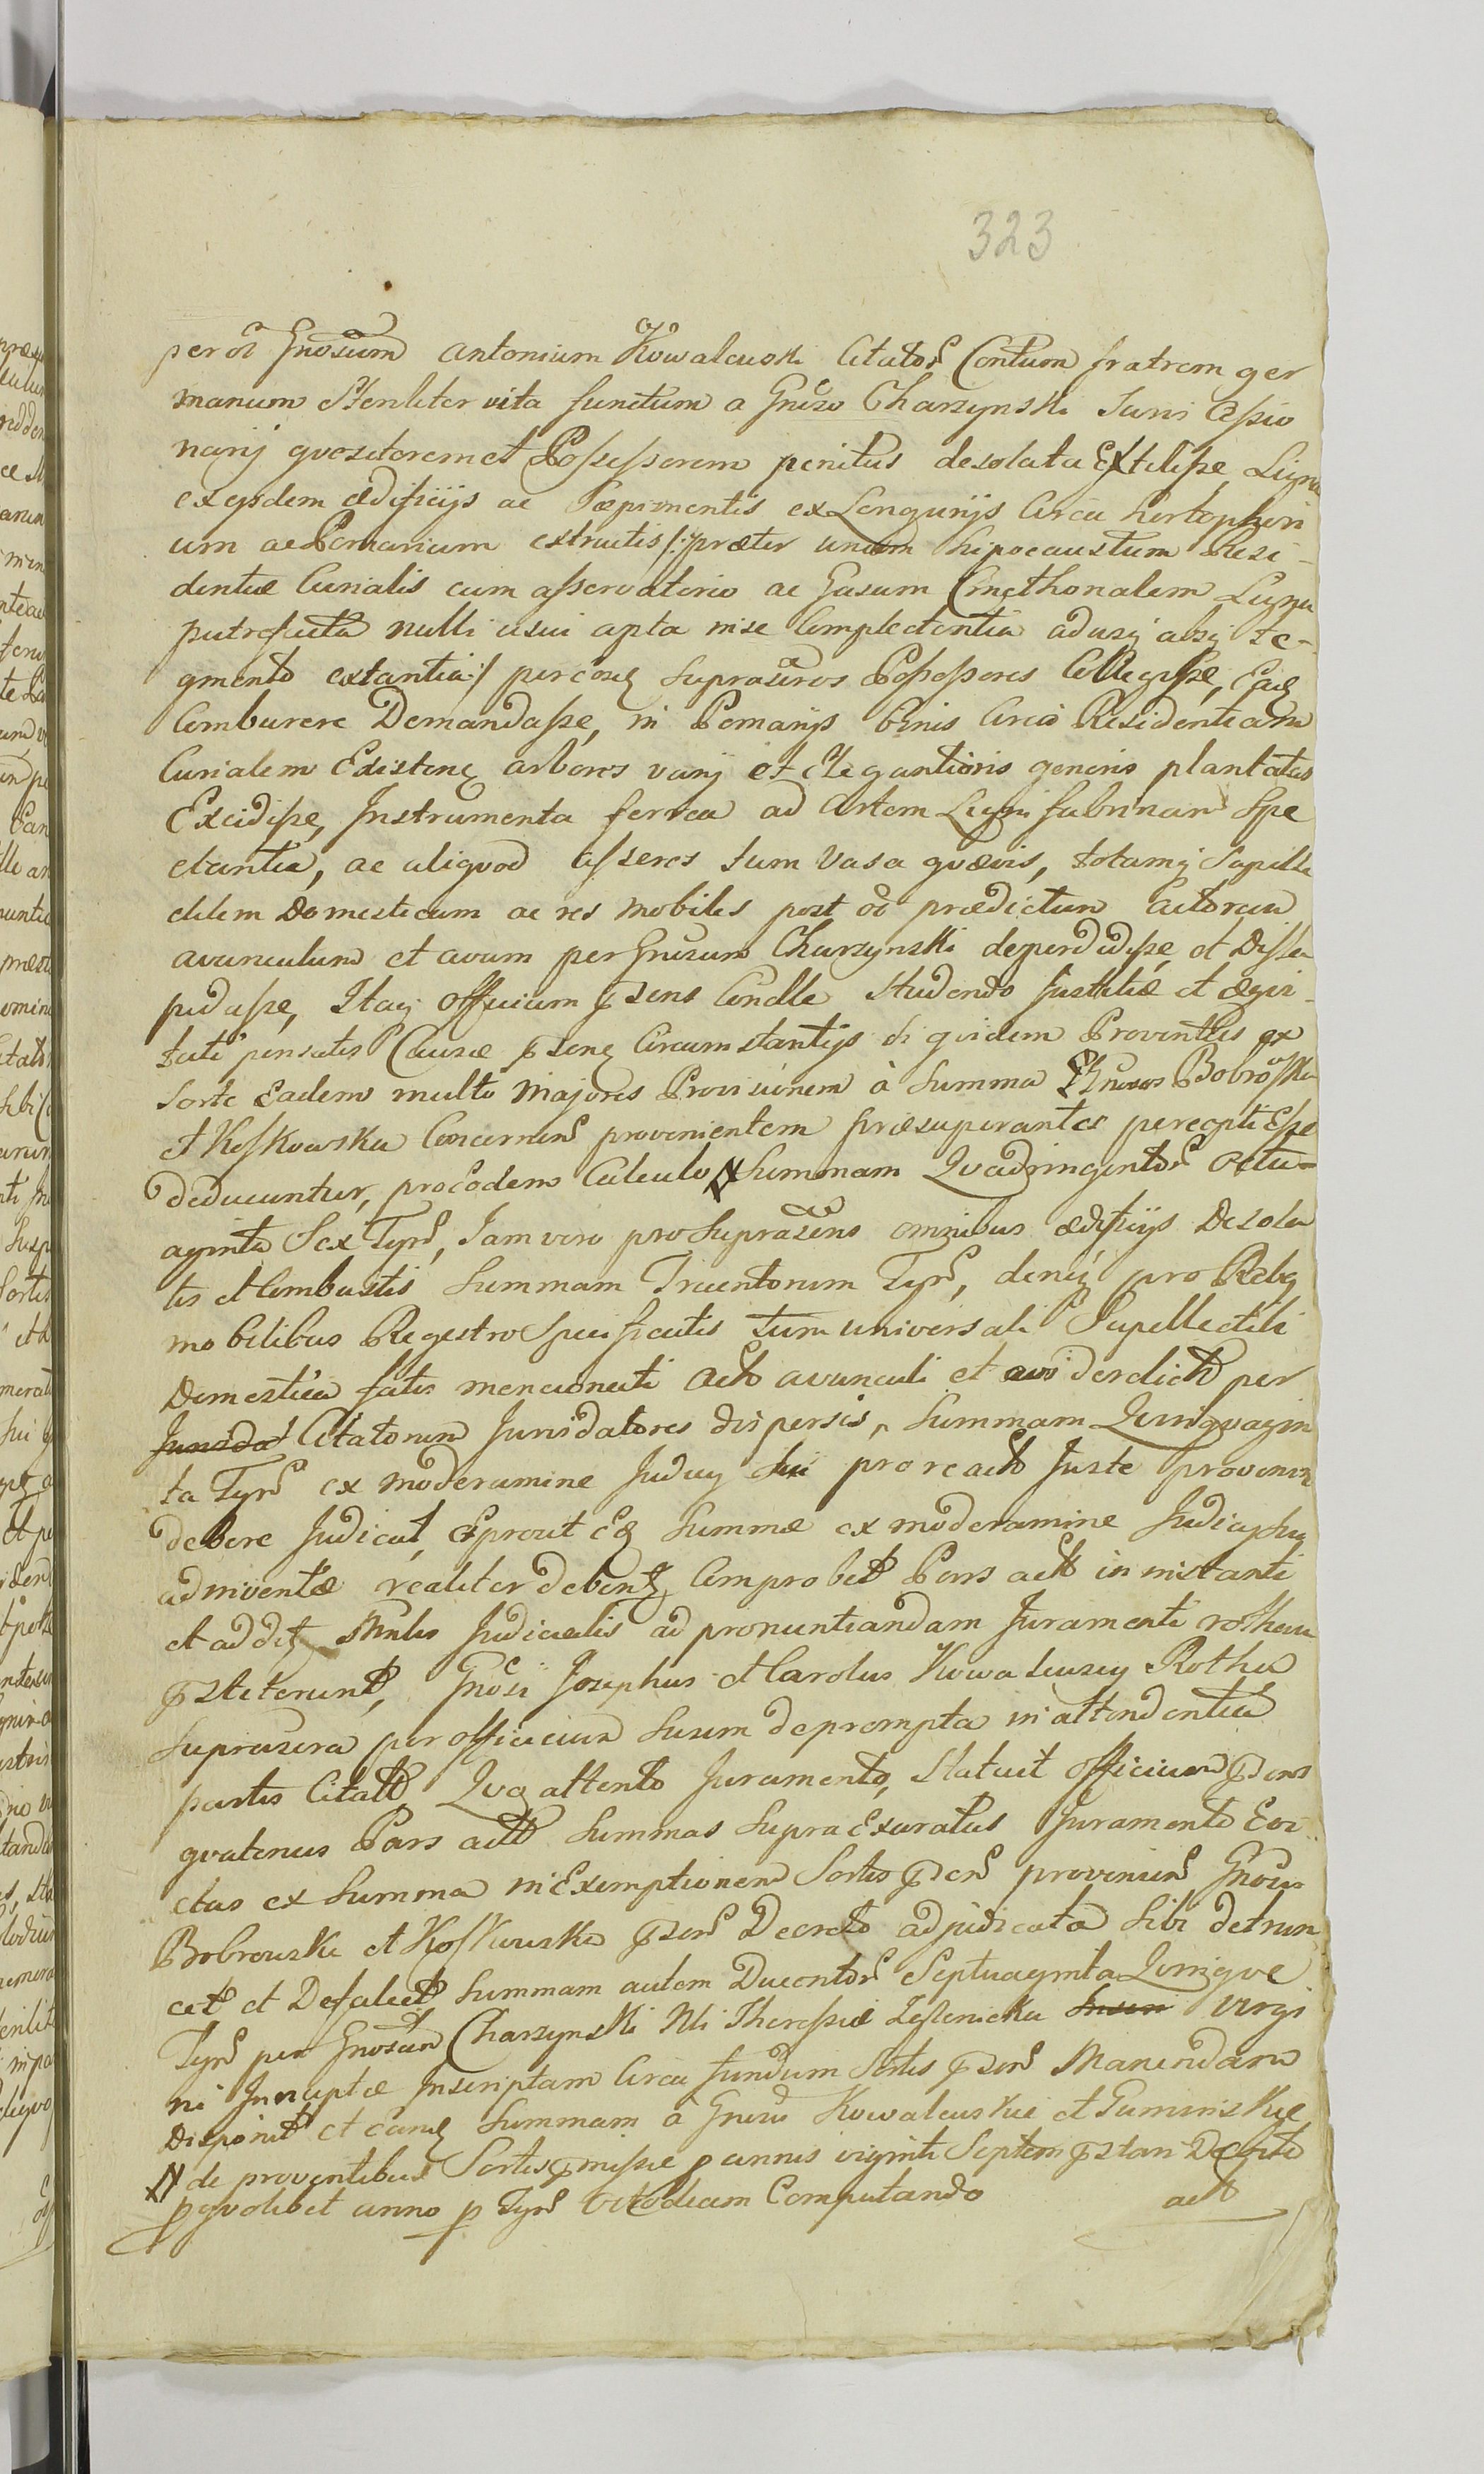 323
per ol Gnosum Antonium Kowalewski Citator Contum fratrem ger
manum Steriliter vita functum a Gnoso Charzynski Juris Cessio
narij quositorem et Possessorem penitus desolata Extitisse, Ligna
ex ejsdem ædificijs ac Sæpimentis ex Longurijs Circa hortopheri
um ac Pomarium extructis /: præter unum hipocaustum Resi-
dentiæ Curialis cum asservatorio ac Gasam Cmethonalem Ligna
putrefacta nulli usui apta in se Complectentia adusq absq te-
gmento extantia :/ per eosq supraseros Possessores Collegisse, Eaq
Comburere Demandasse, in Pomarijs binis Circa Residentiam
Curialem Existenq arbores varij et Elegantioris generis plantatas
Excidisse, Instrumenta ferrea ad Artem Ligni fabrinam Spe
ctantia, ac aliquod asseres tum Vasa quævis, totamq Supelle
ctilem Domesticam ac res mobiles post ol prædictum Actorum
avunculum et avum per Gnosum Charzynski deperdidisse, et Dissi
pidasse, Itaq officium pdens Condlle Studendo Justitiæ et æqui-
tati pensatis Causæ pdenq Circumstantijs si quidem Proventus ex
Sorte Eadem multo majores Provisionem à Summa Gnosos Bobrowska
et Koskowska Concernen provenientem præsuperantes percepti Esse
deducuntur, pro eodem Calculo # Summam Quadringentor Octu-
aginta Sex Tynf, Jam vero pro Suprasens omnibus ædificijs Desola
tis et Combustis Summam Trecentorum Tynf, deniq pro Rebq
mobilibus Regestro Specificatis tum universali Supellectili
Domestica satis mencionati Actt avunculi et avi derelictt per
Citatorum Jurisdatores dispersis, Summam Quinquagin
ta Tynf ex moderamine Judicij sui pro re actt Juste provenire
debere Judicat, Et prout Eæ Summæ ex moderamine Judicij sui
adinventæ realiter debentq Comprobet Pars actt in instanti
et additq Mnlis Judicialis ad pronuntiandam Juramenti rotham
pstiterunt, Gnosi Josephus et Carolus Kowalewscy Rotha
suprasera per officium Suum deprompta in attendentia
partis Citatt Quo attento Juramento, Statuit officium pdens
quatenus Pars actt Summas supra Exaratas Juramento Evi
ctas ex Summa in Exemptionem Sortis pden provenien Gnosis
Bobrowska et Koskowska psen Decreto adjudicata sibi detrun
cet et Defalcet, Summam autem Ducentor Septuaginta Quinque
Tynf per Gnosum Charzynski Nli Theressiæ Jeslenicka Virgi
ni Innuptæ Inscriptam Circa fundum Sortis psen Manendam
Disponit et eamq Summam à Gnosis Kowalewskie et Guminskie
# de proventibus Sortis pmissæ p annis viginti Septem pstari Debite
p quolibet anno p Tynf Octodecim Computando
actt